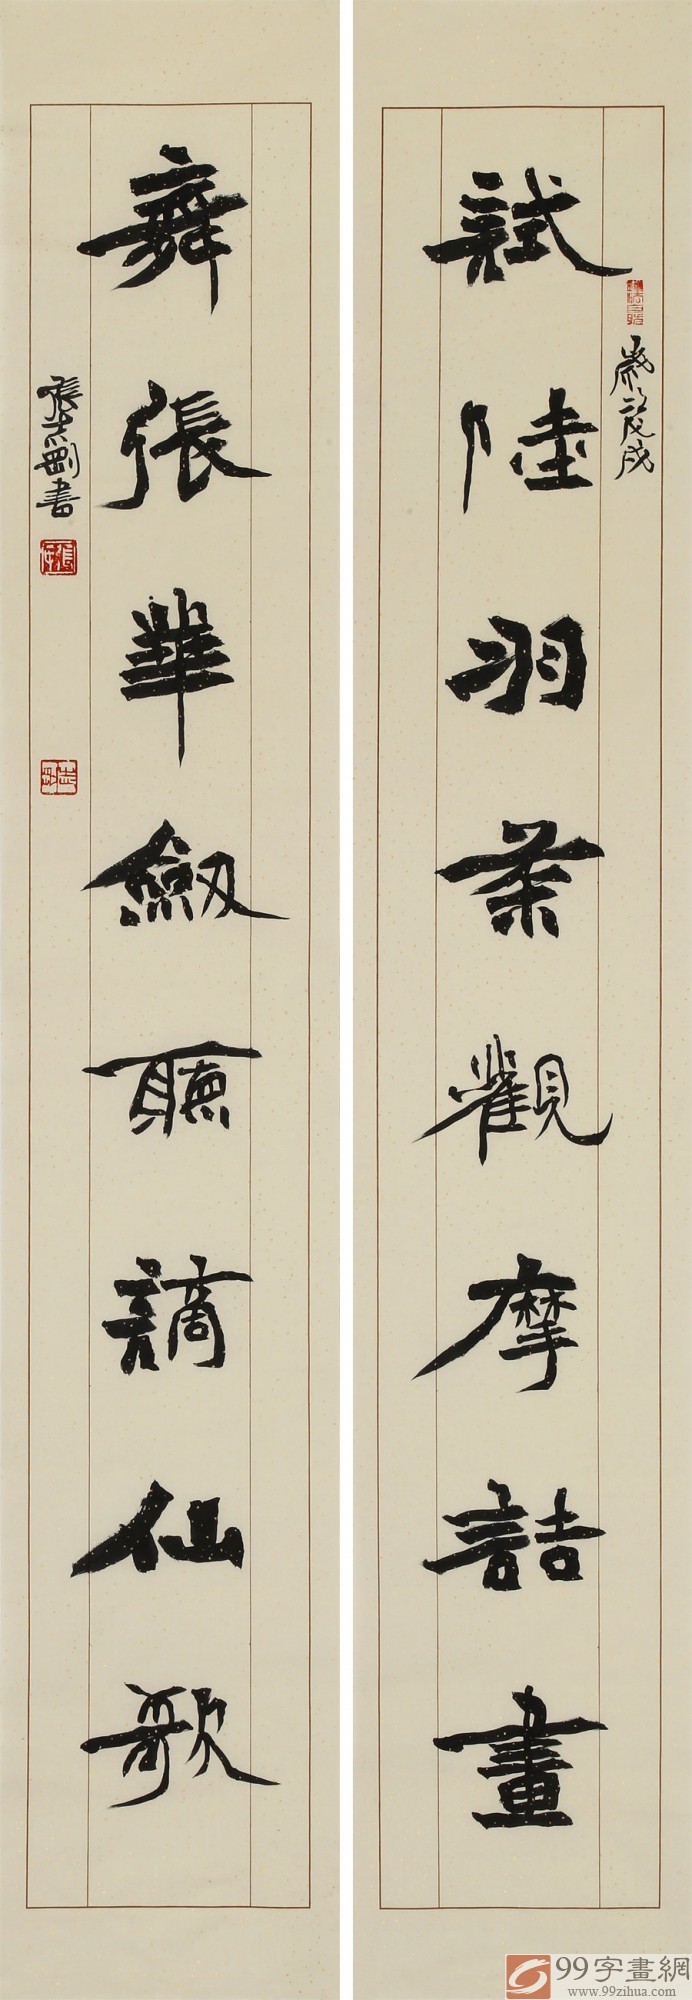 試陸羽茶觀摩詰畫
歲次戊戌
舞張華劍聽謫仙歌
張志剛書
99字畫網
www.99zihua.com